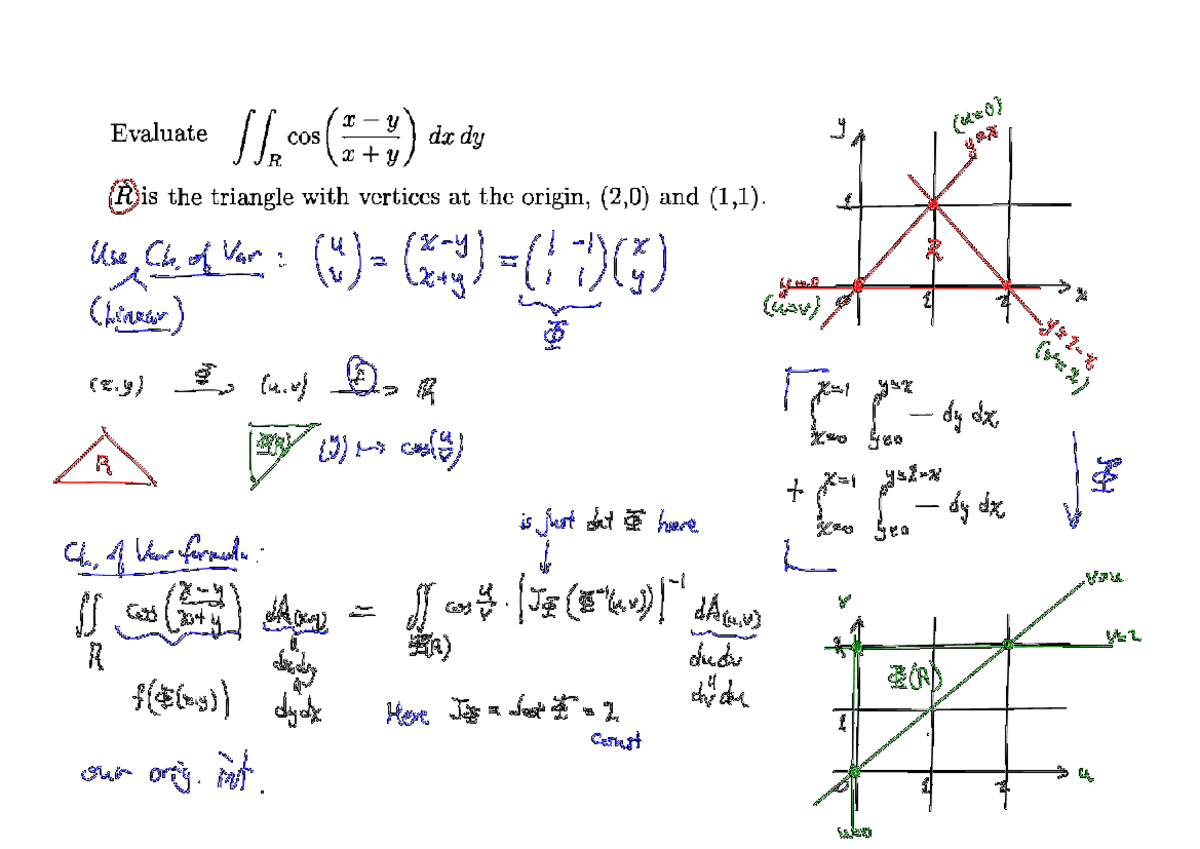 Evaluate ∬_R cos( (x − y) / (x + y) ) dx dy
R is the triangle with vertices at the origin, (2,0) and (1,1).
Use Ch. of Var : (u v) = (x-y x+y) = (1 -1 1 1)(x y)
(Linear)
Φ
(x,y) Φ→ (u,v) f→ ℝ
R Φ(R) (u v) ↦ cos(u/v)
is just det Φ here
Ch. of Var formula:
∬_R cos( (x-y) / (x+y) ) dA(x,y) = ∬_Φ(R) cos u/v · |J_Φ (Φ⁻¹(u,v))|⁻¹ dA(u,v)
dxdy dudv
f(Φ(x,y)) dydx dvdu
Here J_Φ = det Φ = 2
const
our orig. int.
y (u=0)
y=x
1
R
y=0 0 1 2 x
(u=v) y=2-x
(v=2)
∫_{x=0}^{x=1} ∫_{y=0}^{y=x} — dy dx
+ ∫_{x=0}^{x=1} ∫_{y=0}^{y=2-x} — dy dx
Φ
v v=u
2 v=2
Φ(R)
1
0 1 2 u
u=0